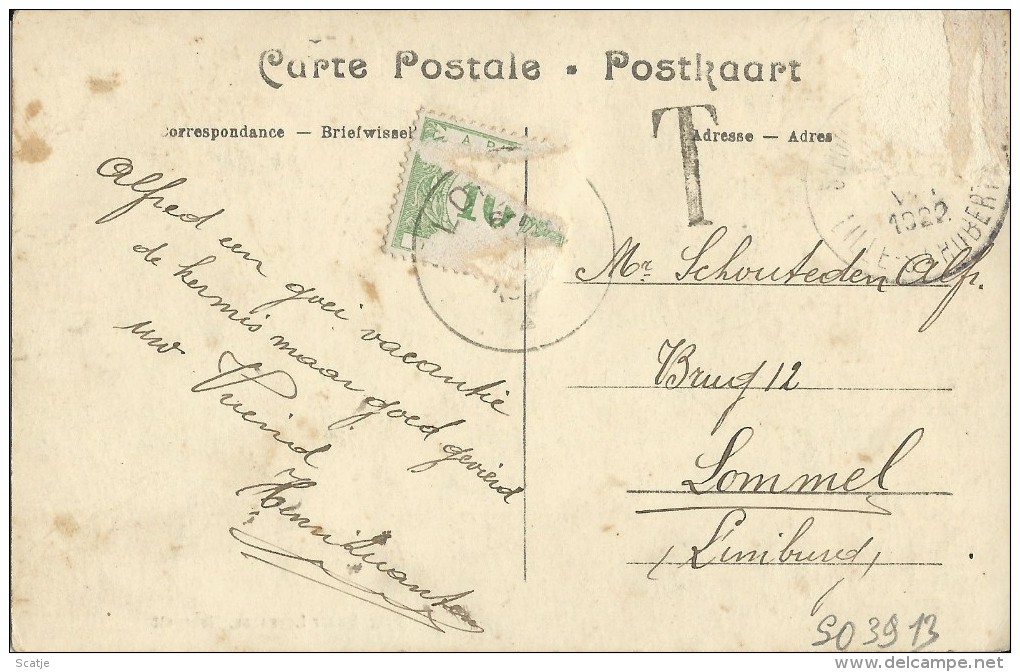 Carte Postale • Postkaart
Correspondance — Briefwissel
Adresse — Adres
T
10
1922
LILLE-ST-HUBERT
Alfred een goei vacantie
de kermis maar goed gevierd
uw Vriend
Henri
Mr. Schouteden Alf.
Brug 12
Lommel
(Limburg)
SO3913
Scatje
www.delcampe.net